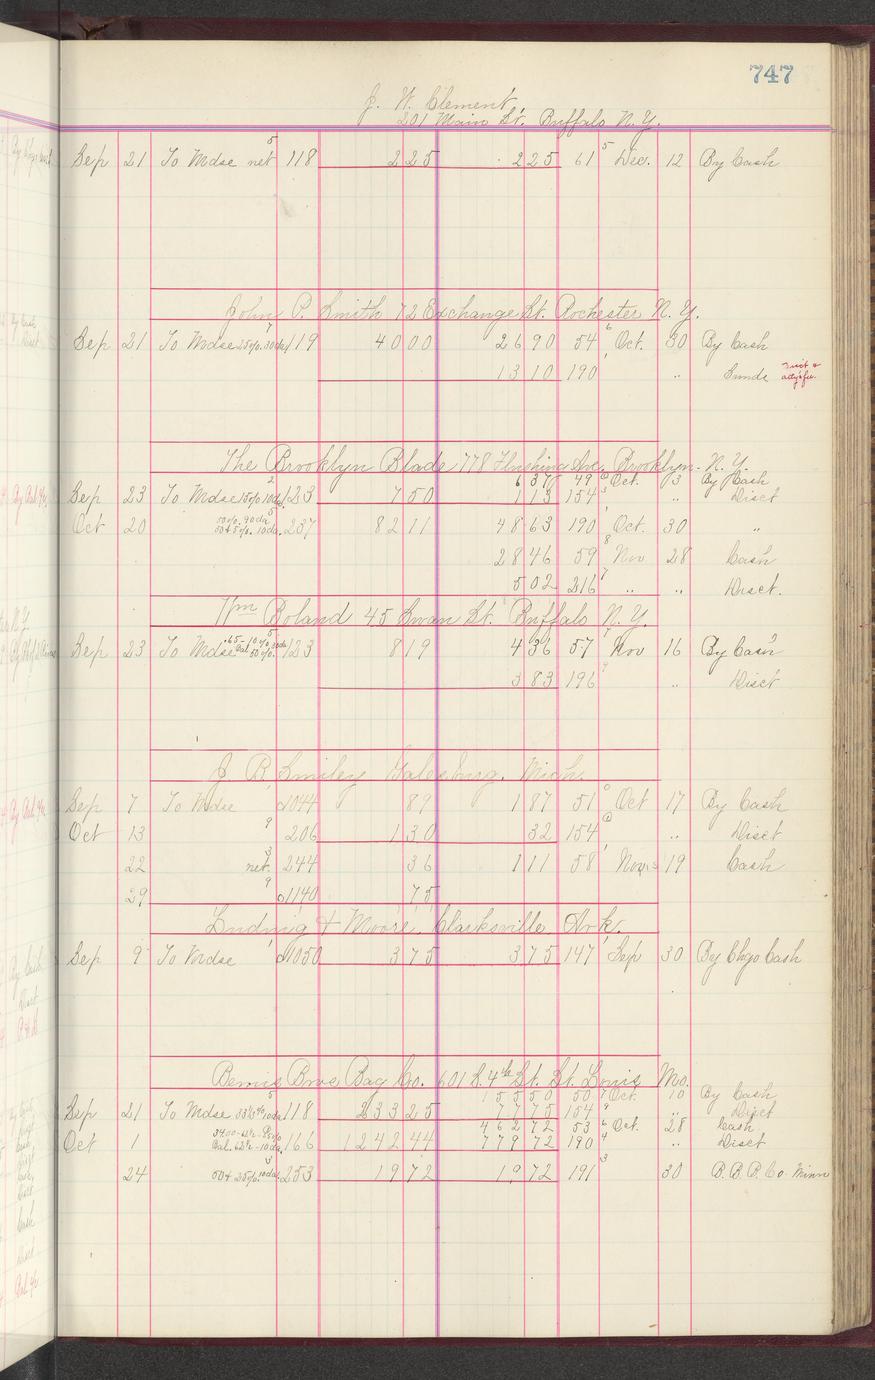 747
J. W. Clement
201 Main St. Buffalo N. Y.
Sep 21 To Mdse net 5 118 2 25 2 25 61 5 Dec. 12 By Cash
John P. Smith 72 Exchange St. Rochester N. Y.
Sep 21 To Mdse 25%.30da 7 119 40 00 26 90 54 6 Oct. 30 By Cash
13 10 190 1 " Sunds
The Brooklyn Blade 778 Flushing Ave. Brooklyn. N. Y.
6 37 49 Oct. 3 By Cash
Sep 23 To Mdse 15% 10da. 2 123 7 50 1 13 154 3 " Disct
Oct 20 50%. 90da 50+5%. 10da. 5 237 82 11 48 63 190 1 Oct. 30 "
28 46 59 8 Nov 28 Cash
5 02 216 7 " " Disct.
Wm Boland 45 Swan St. Buffalo N. Y.
Sep 23 To Mdse .65-10%.30da Bal. 50%. 5 123 8 19 4 36 57 1 Nov 16 By Cash
3 83 196 9 " Disct
J B Smiley Galesburg. Mich.
Sep 7 To Mdse 1 1044 89 1 87 51 Oct 17 By Cash
Oct 13 9 206 1 30 32 154 " Disct
22 net. 3 244 36 1 11 58 1 Nov. 19 Cash
29 9 1140 75
Ludwig & Moore. Clarksville Ark.
Sep 9 To Mdse 1 1050 3 75 3 75 147 1 Sep 30 By Chgo Cash
Bemis Bros Bag Co. 601 S. 4th St. St. Louis Mo.
155 50 50 7 Oct. 10 By Cash
Sep 21 To Mdse 33⅓% 10da 5 118 233 25 77 75 154 9 " Disct
462 72 53 6 Oct. 28 Cash
Oct 1 Bal. 62½-10da. 166 1242 44 779 72 190 4 " Disct
24 50+35%.10da. 3 253 19 72 19 72 191 3 30 B. B. B. Co. Minn